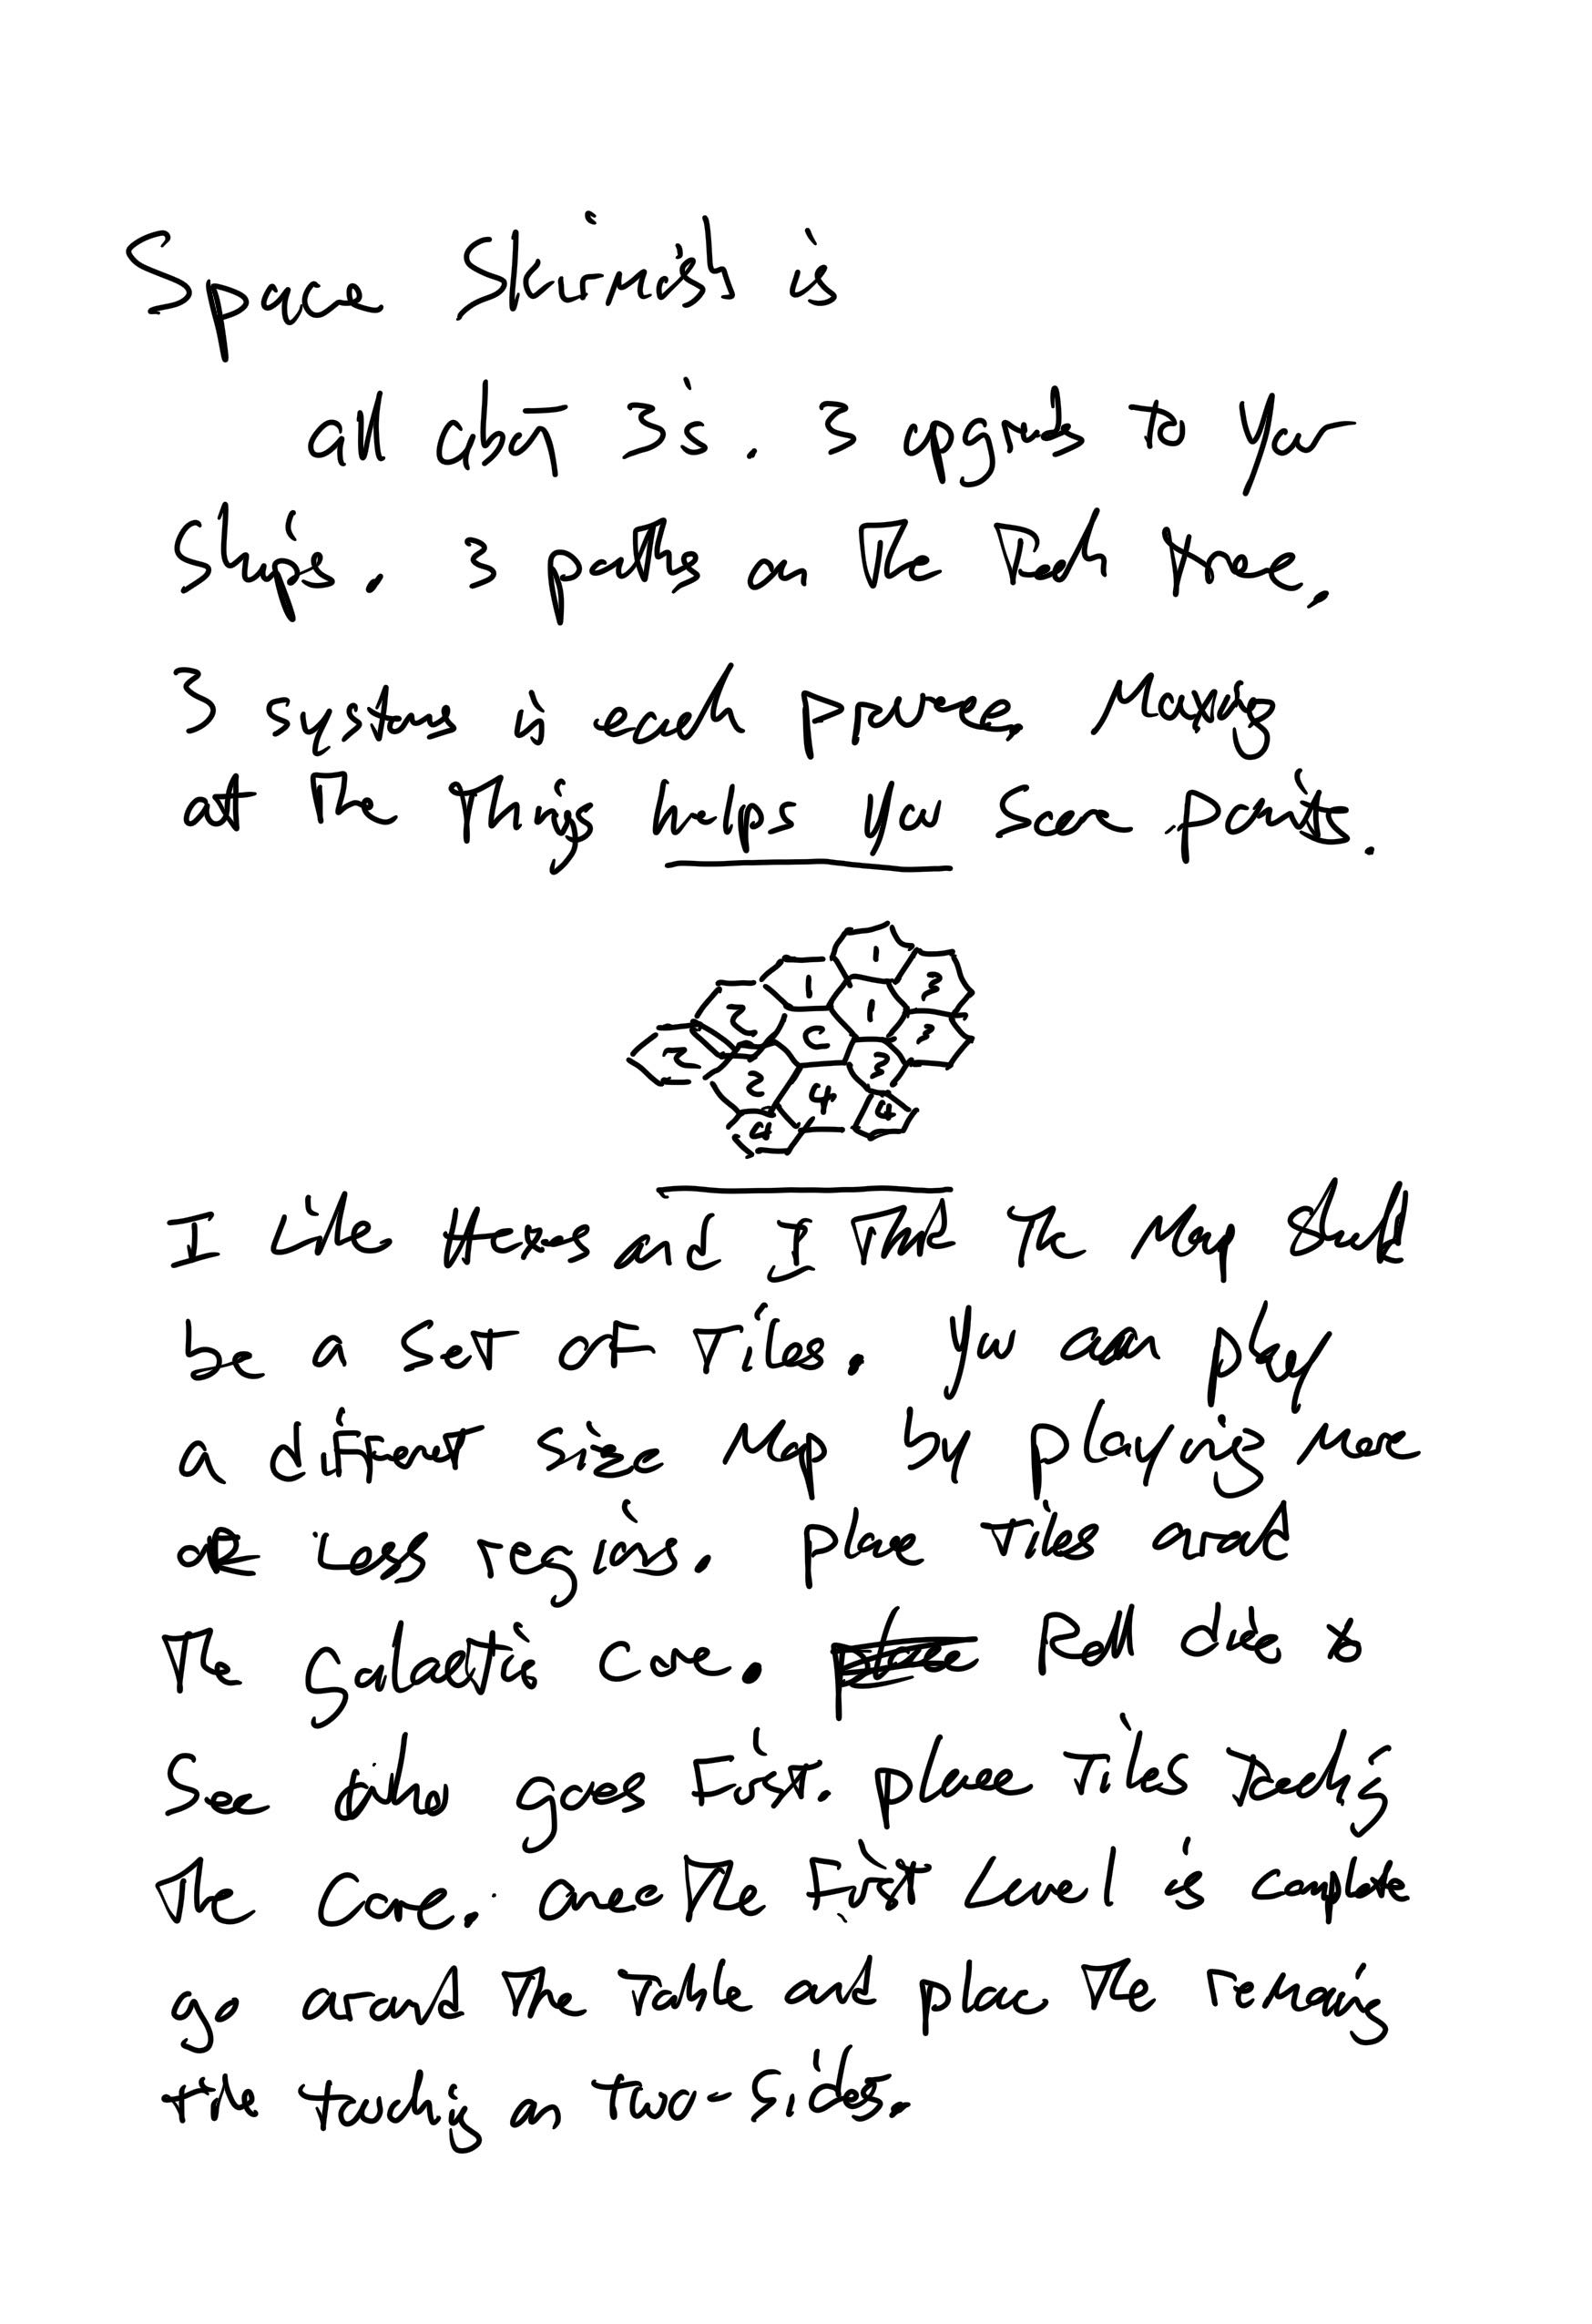 Space Skirmish is
all about 3's. 3 upgrades to your
Ships. 3 paths on the Tech tree.
3 systems in each province. Maxing
at the thing helps you score points.
1
1 3
2 1
C 3
2 2 3
4 4
4
I Like Hexes and I think The Map Should
be a set of tiles. You can play
a different size Map by playing More
or Less regions. place tiles around
The galactic core. Roll dice to
See who goes First. place tiles Touching
The Core. once The First Level is complete
go around The Table and place The remaining
tile touching on two-sides.